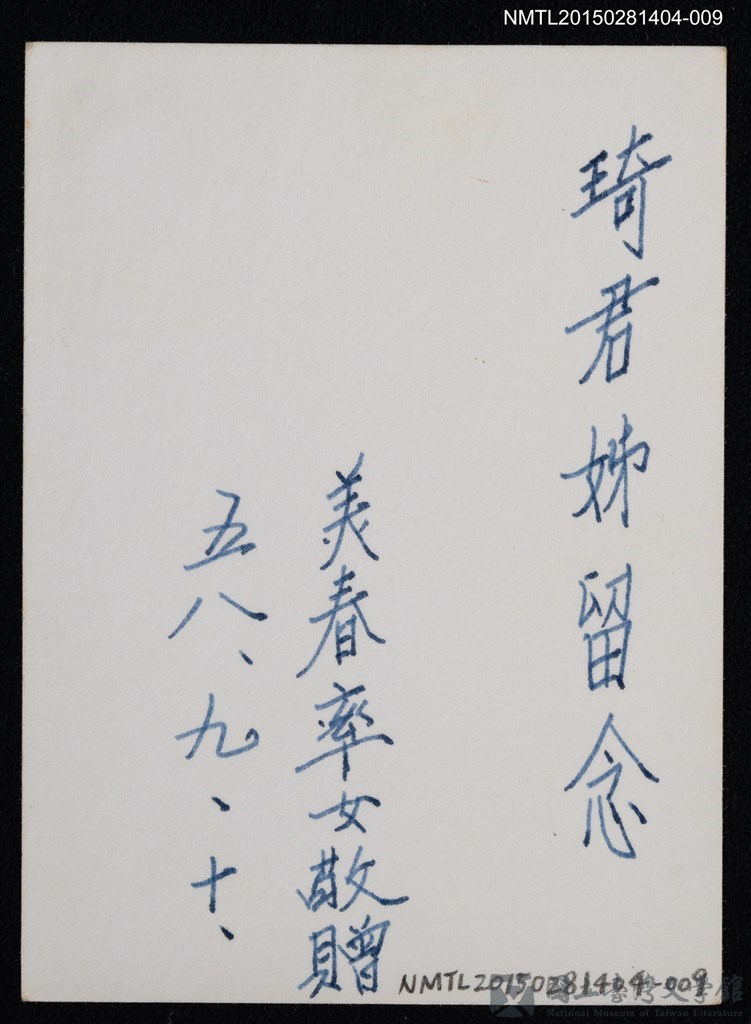 NMTL20150281404-009
琦君姊留念
美春率女敬贈
五八、九、十、
NMTL20150281404-009
國立臺灣文學館
National Museum of Taiwan Literature